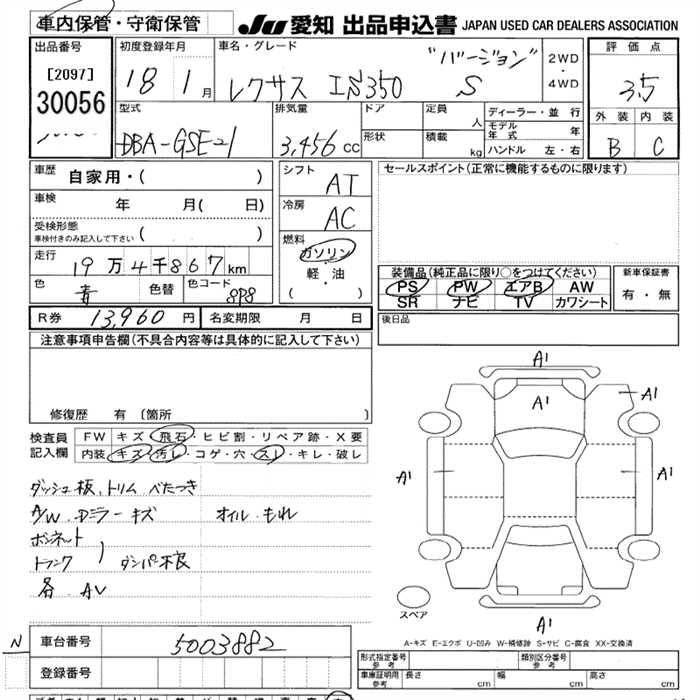 車内保管・守衛保管
JU 愛知 出品申込書 JAPAN USED CAR DEALERS ASSOCIATION
出品番号
[2097]
30056
初度登録年月
18 1 月
車名・グレード
レクサス IS350 "バージョン" S
2WD
・
4WD
評価点
3.5
外装 内装
B C
型式
DBA-GSE21
排気量
3,456 cc
ドア
形状
定員
人
積載
kg
ディーラー・並行
モデル年式 年
ハンドル 左・右
車歴
自家用・( )
車検
年 月( 日)
受検形態
車検付きのみ記入して下さい ( )
走行
19万4千867km
色
青
色替
色コード
8P8
シフト
AT
冷房
AC
燃料
ガソリン
軽・油
( )
セールスポイント(正常に機能するものに限ります)
装備品(純正品に限り○をつけてください)
PS PW エアB AW
SR ナビ TV カワシート
新車保証書
有・無
R券 13,960 円 名変期限 月 日
後日品
注意事項申告欄(不具合内容等は具体的に記入して下さい)
修復歴 有 [箇所 ]
検査員
記入欄
FW キズ・飛石・ヒビ割・リペア跡・X要
内装 キズ・汚レ・コゲ・穴・スレ・キレ・破レ
ダッシュ板、トリム べたつき
A/W.Dミラーキズ オイルもれ
ボンネット
トランク ) ダンパ不良
各 AV
A1
A1
A1
A1
A1
A1
スペア
A-キズ E-エクボ U-凹み W-補修跡 S-サビ C-腐食 XX-交換済
N
車台番号 5003882
登録番号
形式指定番号
参考
類別区分番号
参考
車庫証明用
参考
長さ cm 幅 cm 高さ cm